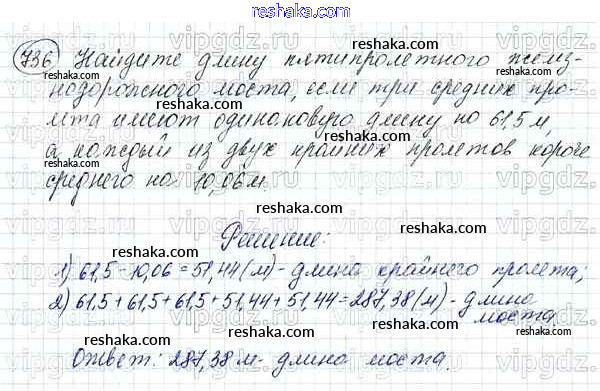 reshaka.com
736 Найдите длину пятипролетного желез-
нодорожного моста, если три средних про-
лёта имеют одинаковую длину по 61,5 м,
а каждый из двух крайних пролетов короче
среднего на 10,06 м.
Решение:
1) 61,5 - 10,06 = 51,44 (м) - длина крайнего пролета;
2) 61,5 + 61,5 + 61,5 + 51,44 + 51,44 = 287,38 (м) - длина
моста.
Ответ: 287,38 м - длина моста.
reshaka.com